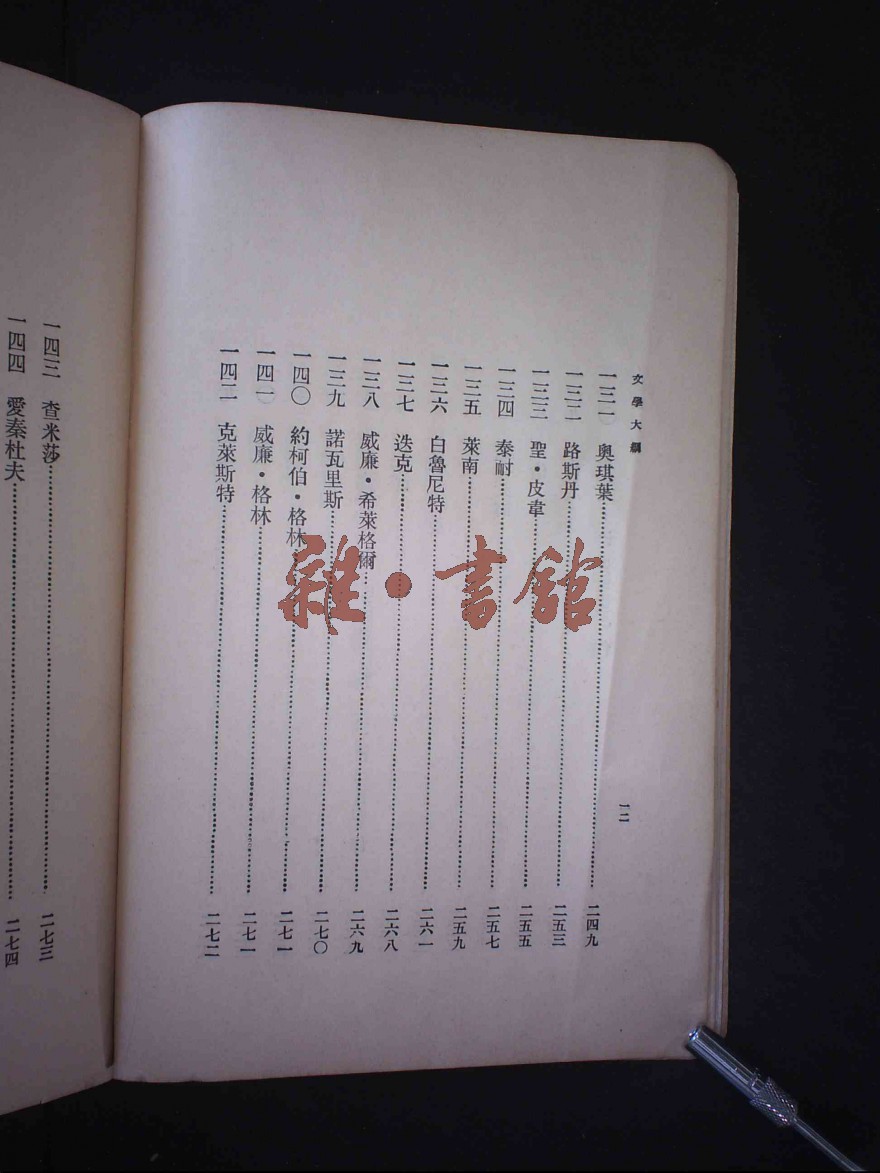 文學大綱
一二
一三一 奧琪葉……二四九
一三二 路斯丹……二五三
一三三 聖·皮韋……二五五
一三四 泰耐……二五七
一三五 萊南……二五九
一三六 白魯尼特……二六一
一三七 迭克……二六八
一三八 威廉·希萊格爾……二六九
一三九 諾瓦里斯……二七〇
一四〇 約柯伯·格林……二七一
一四一 威廉·格林……二七一
一四二 克萊斯特……二七二
一四三 查米莎……二七三
一四四 愛秦杜夫……二七四
雜·書館